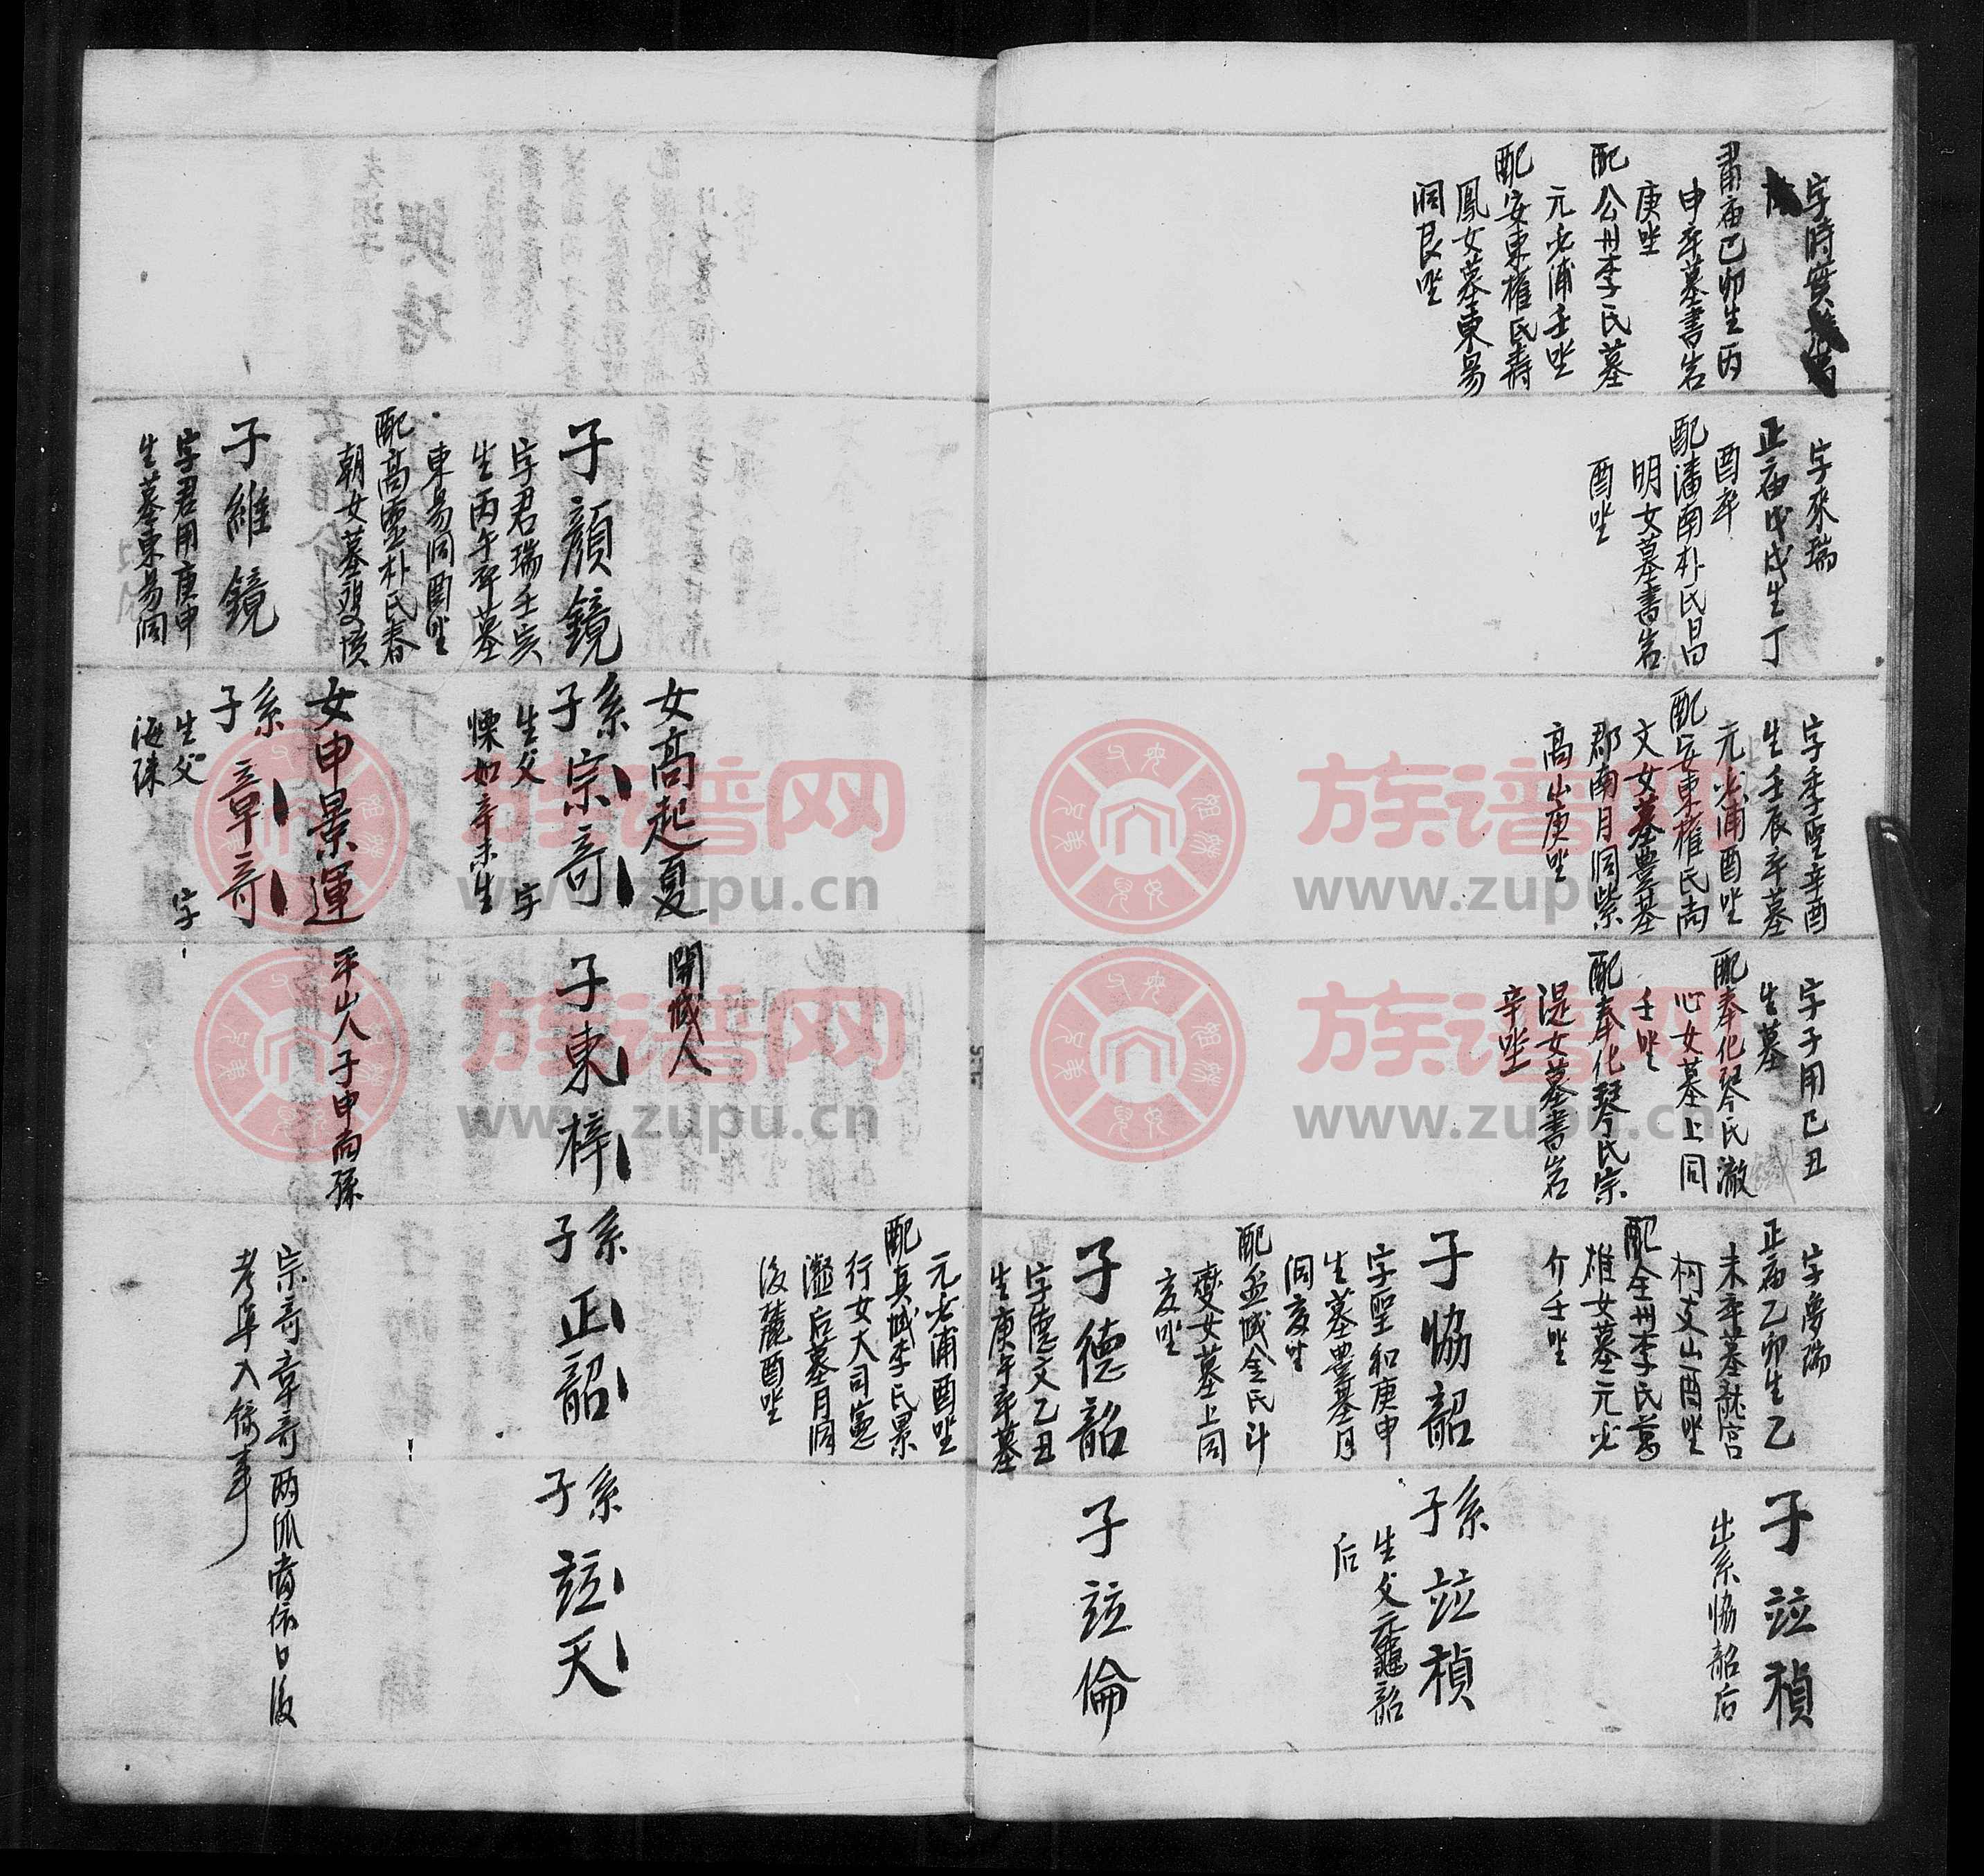 字時實
肅庙己卯生丙
申卒墓書岩
庚坐
配公州李氏墓
元必浦壬坐
配安東權氏壽
鳳女墓東易
洞艮坐
字來瑞
正庙戊戌生丁
酉卒
配潘南朴氏昌
明女墓書岩
酉坐
字季聖辛酉
生壬辰卒墓
元必浦酉坐
配安東權氏尚
文女墓豊基
郡南月洞紫
高山庚坐
字子用己丑
生墓
配奉化琴氏澈
心女墓上同
壬坐
配奉化琴氏宗
湜女墓書岩
辛坐
字夢瑞
正庙乙卯生乙
未卒墓
柯支山酉坐
配全州李氏萬
雄女墓元必
介壬坐
子竝禎
出系恊韶后
子恊韶
字聖和庚申
生墓豊基月
洞亥坐
配孟城金氏斗
燮女墓上同
亥坐
系子竝禎
生父元龜韶
后
子德韶
字德文乙丑
生庚午卒墓
元必浦酉坐
配真城李氏景
行女大司憲
瀣后墓月洞
後麓酉坐
子竝倫
女高起夏
開城人
子顔鏡
字君瑞壬寅
生丙午卒墓
東易洞酉坐
配高靈朴氏春
朝女墓
系子宗奇
生父 字
慄如辛未生
子東梓
系子正韶
系子竝天
女申景運
平山人子申尚孫
子維鏡
字君用庚申
生墓東易洞
系子章奇
生父 字
海珠
宗奇章奇兩派脩依日後
考阜入條事
族谱网
www.zupu.cn
族谱网
www.zupu.cn
族谱网
www.zupu.cn
族谱网
www.zupu.cn